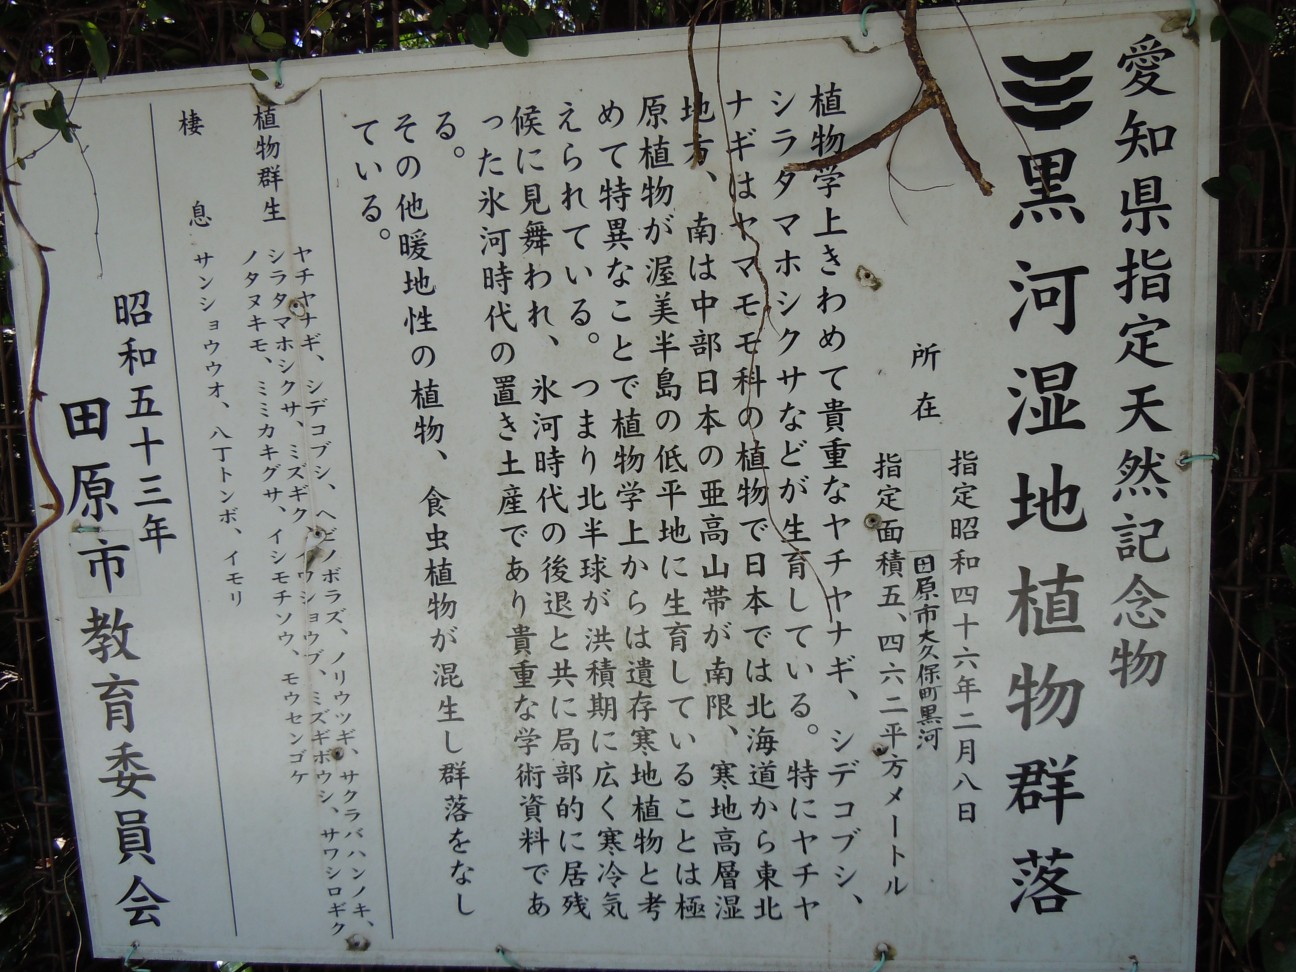 愛知県指定天然記念物
黒河湿地植物群落
指定昭和四十六年二月八日
所在 田原市大久保町黒河
指定面積五、四六二平方メートル
植物学上きわめて貴重なヤチヤナギ、シデコブシ、
シラタマホシクサなどが生育している。特にヤチヤ
ナギはヤマモモ科の植物で日本では北海道から東北
地方、南は中部日本の亜高山帯が南限、寒地高層湿
原植物が渥美半島の低平地に生育していることは極
めて特異なことで植物学上からは遺存寒地植物と考
えられている。つまり北半球が洪積期に広く寒冷気
候に見舞われ、氷河時代の後退と共に局部的に居残
った氷河時代の置き土産であり貴重な学術資料であ
る。
その他暖地性の植物、食虫植物が混生し群落をなし
ている。
植物群生 ヤチヤナギ、シデコブシ、ヘビノボラズ、ノリウツギ、サクラバハンノキ、
シラタマホシクサ、ミズギク、イワショウブ、ミズギボウシ、サワシロギク
ノタヌキモ、ミミカキグサ、イシモチソウ、モウセンゴケ
棲息 サンショウウオ、八丁トンボ、イモリ
昭和五十三年
田原市教育委員会